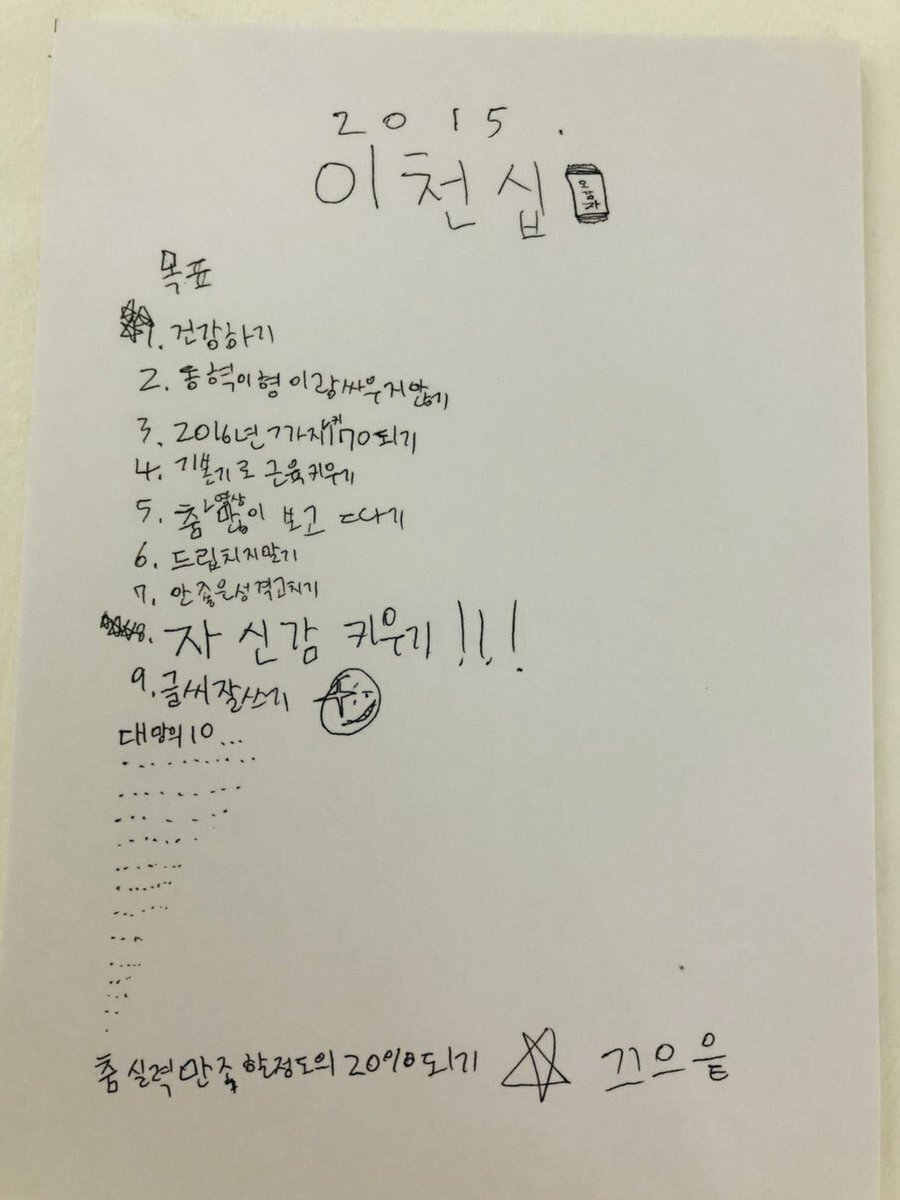 2015.
이천십
오감자
목표
1. 건강하기
2. 동혁이형이랑싸우지않기
3. 2016년까지키170되기
4. 기본기로 근육키우기
5. 춤영상많이 보고 따기
6. 드립치지말기
7. 안좋은성격고치기
8. 자신감 키우기!!!
9. 글씨잘쓰기
대망의10...
춤실력만족한정도의20%되기 끄으읕